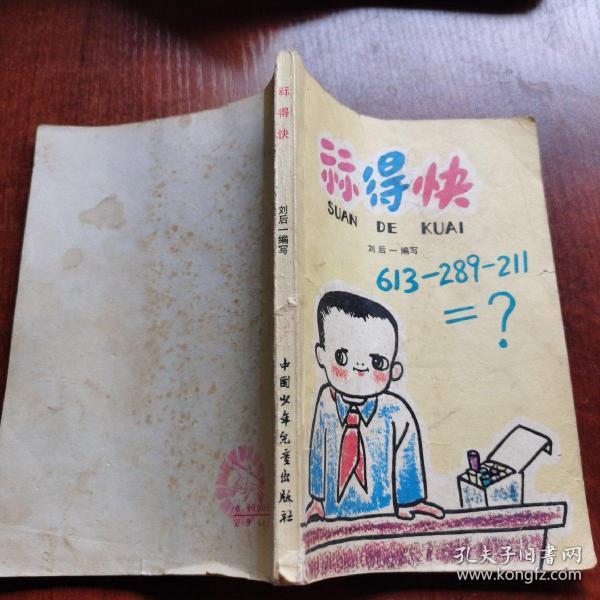 祘得快
SUAN DE KUAI
刘后一编写
613-289-211
=?
祘得快
刘后一编写
中国少年儿童出版社
孔夫子旧书网
www.kongfz.com